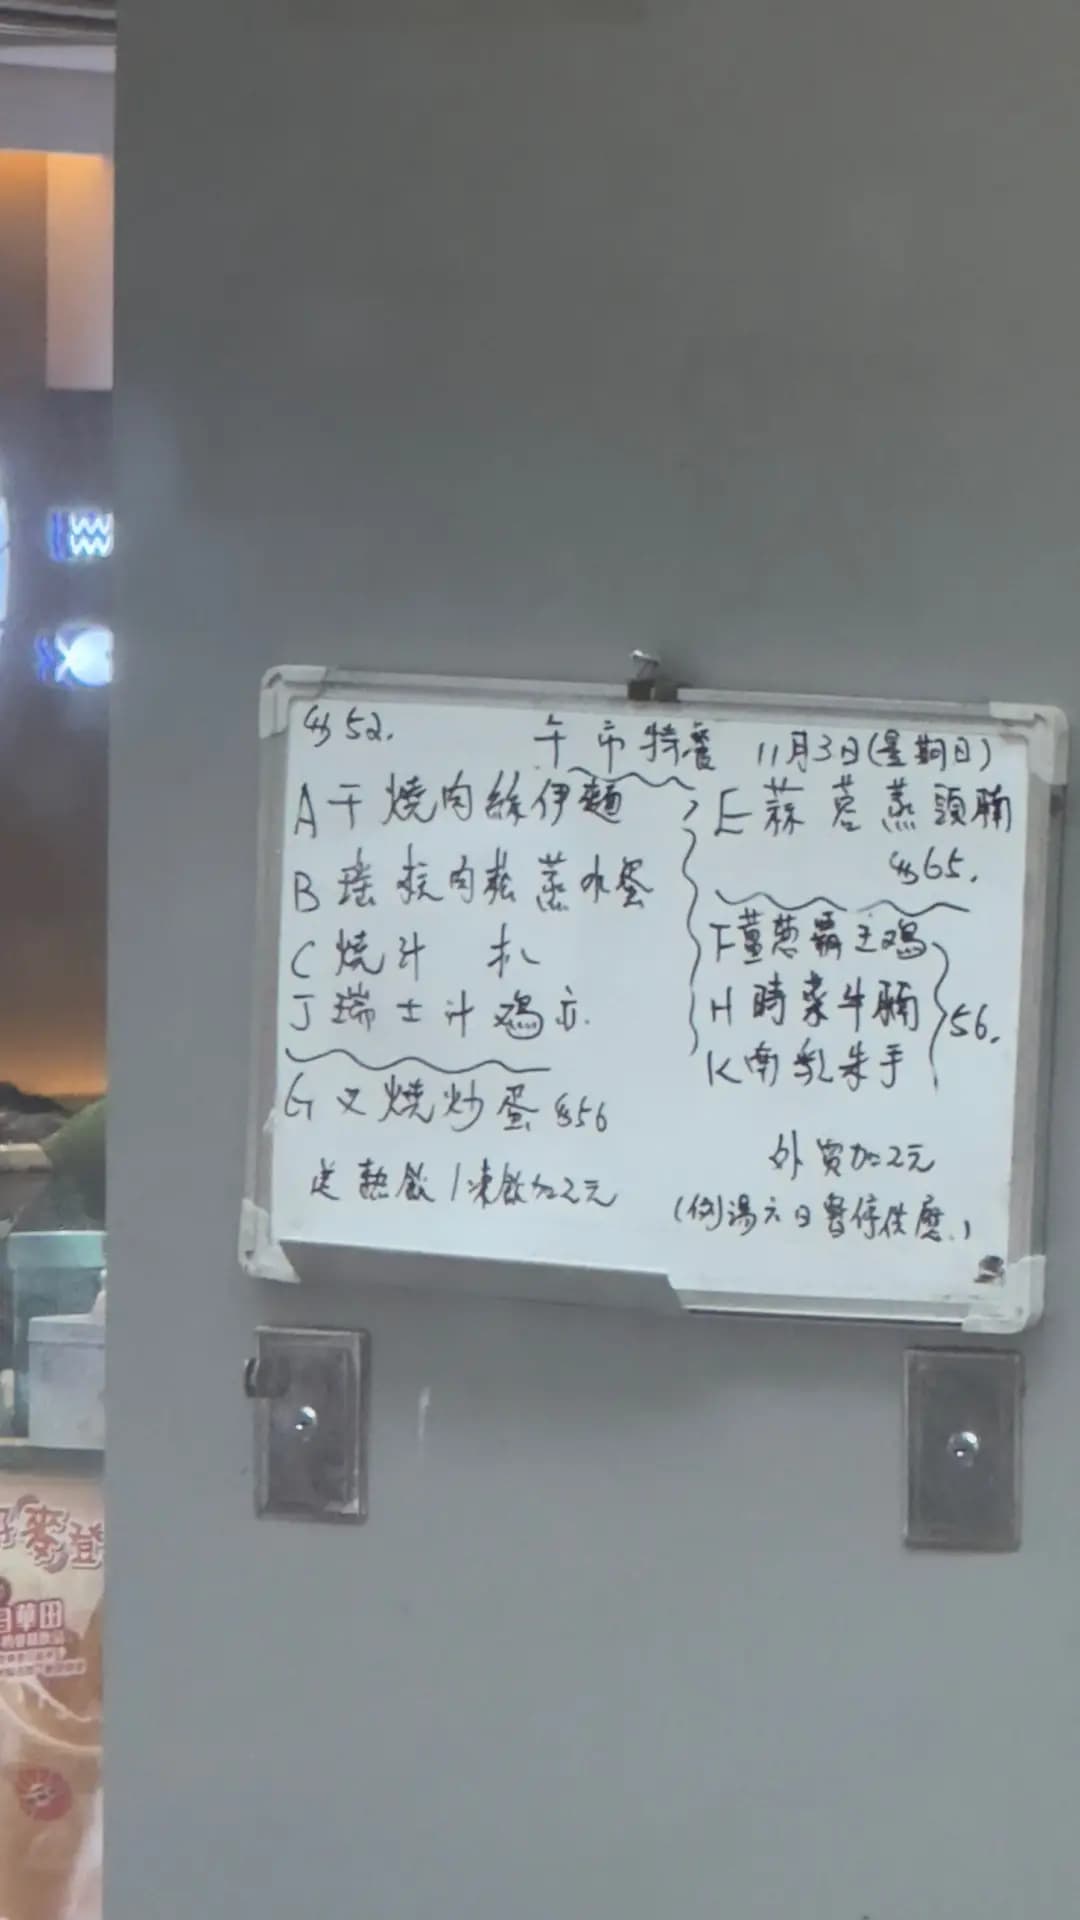 $52.
午市特餐 11月3日(星期日)
A干燒肉絲伊麵
B瑤柱肉鬆蒸水蛋
C燒汁 扒
J瑞士汁鸡亦.
G叉燒炒蛋 $56
送熱飲/凍飲加2元
E蒜蓉蒸頭腩
$65.
F薑蔥霸王鸡
H時菜牛腩
K南乳朱手
56.
外賣加2元
(例湯六日暫停供應.)
麥登